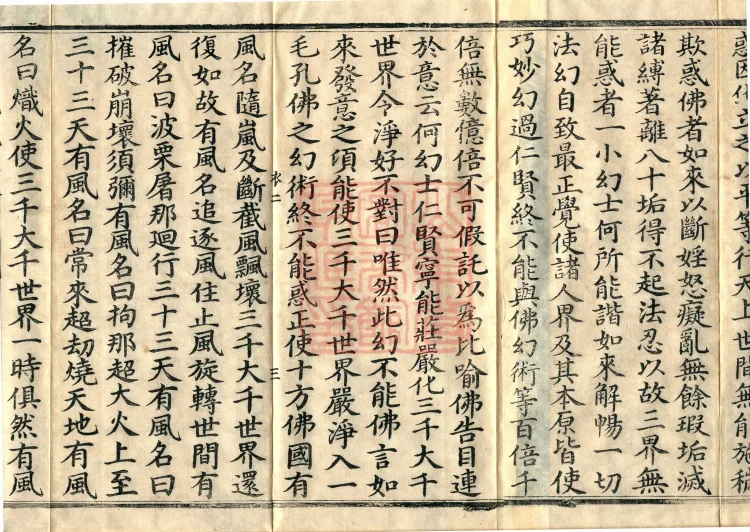 惑因化立之以平等行天上世間無能施
欺惑佛者如來以斷婬怒癡亂無餘瑕垢滅
諸縛著離八十垢得不起法忍以故三界無
能惑者一小幻士何所能諧如來解暢一切
法幻自致最正覺使諸人界及其本原皆使
巧妙幻過仁賢終不能與佛幻術等百倍千
倍無數億倍不可假託以為比喻佛告目連
於意云何幻士仁賢寧能莊嚴化三千大千
世界令淨好不對曰唯然此幻不能佛言如
來發意之頃能使三千大千世界嚴淨入一
毛孔佛之幻術終不能惑正使十方佛國有
衣二 三
風名隨嵐及斷截風飄壞三千大千世界還
復如故有風名追逐風住止風旋轉世間有
風名曰波栗屠那迴行三十三天有風名曰
摧破崩壞須彌有風名曰拘那超大火上至
三十三天有風名曰常來超劫燒天地有風
名曰熾火使三千大千世界一時俱然有風